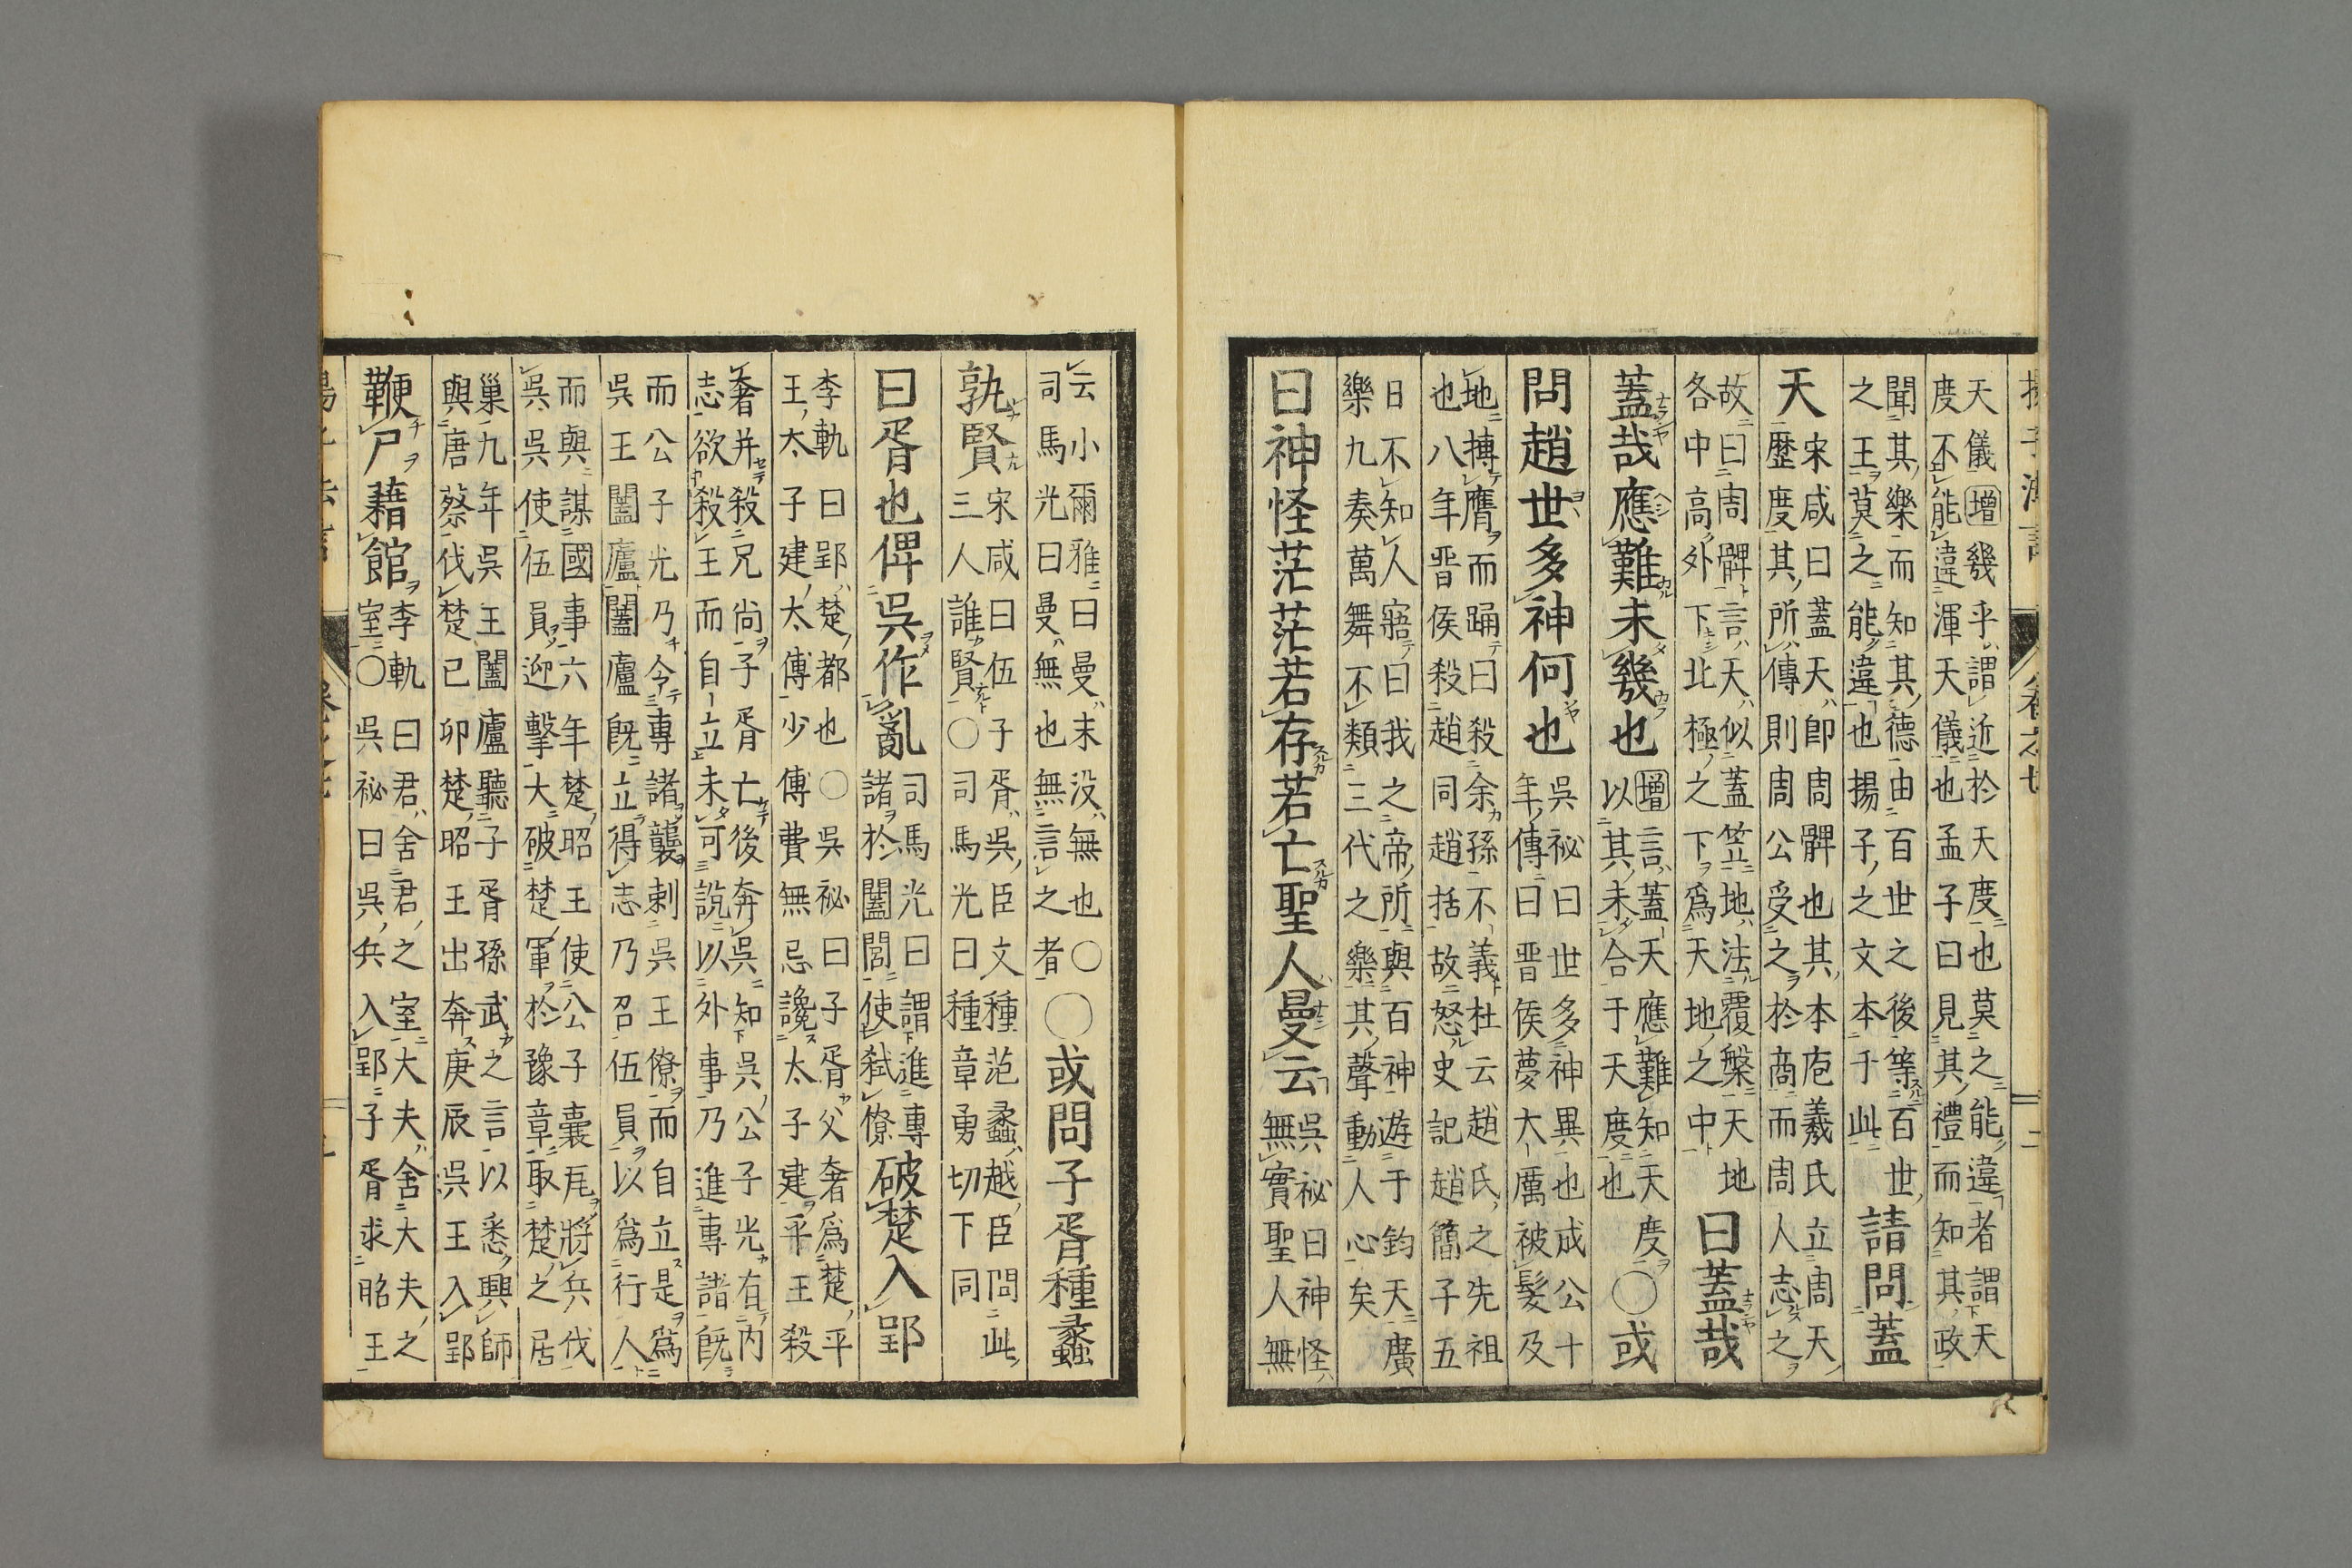 天儀增幾乎謂近於天度也莫之能違者謂天
度不能違渾天儀也孟子曰見其禮而知其政
聞其樂而知其德由百世之後等百世
之王莫之能違也揚子之文本于此
請問蓋
天
宋咸曰蓋天即周髀也其本庖羲氏立周天
歷度其所傳則周公受之於商而周人志之
故曰周髀言天似蓋笠地法覆槃天地
各中高外下北極之下爲天地之中
曰蓋哉
蓋哉應難未幾也
增言蓋天應難知天度
以其未合于天度也
〇或
問趙世多神何也
吳祕曰世多神異也成公十
年傳曰晋侯夢大厲被髮及
地搏膺而踊曰殺余孫不義杜云趙氏之先祖
也八年晋侯殺趙同趙括故怒史記趙簡子五
日不知人寤曰我之帝所與百神遊于鈞天廣
樂九奏萬舞不類三代之樂其聲動人心矣
曰神怪茫茫若存若亡聖人曼云
吳祕曰神怪
無實聖人無
云小爾雅曰曼末没無也〇
司馬光曰曼無也無言之者
〇或問子胥種蠡
孰賢
宋咸曰伍子胥吳臣文種范蠡越臣問此
三人誰賢〇司馬光曰種章勇切下同
曰胥也俾吳作亂
司馬光曰謂進專
諸於闔閭使弑僚
破楚入郢
李軌曰郢楚都也〇吳祕曰子胥父奢爲楚平
王太子建太傅少傅費無忌讒太子建平王殺
奢并殺兄尚子胥亡後奔吳知吳公子光有内
志欲殺王而自立未可說以外事乃進專諸既
而公子光乃令專諸襲刺吳王僚而自立是爲
吳王闔廬闔廬既立得志乃召伍員以爲行人
而與謀國事六年楚昭王使公子囊瓦將兵伐
吳吳使伍員迎擊大破楚軍於豫章取楚之居
巢九年吳王闔廬聽子胥孫武之言以悉興師
與唐蔡伐楚己卯楚昭王出奔庚辰吳王入郢
鞭尸藉館
李軌曰君舍君之室大夫舍大夫之
室〇吳祕曰吳兵入郢子胥求昭王